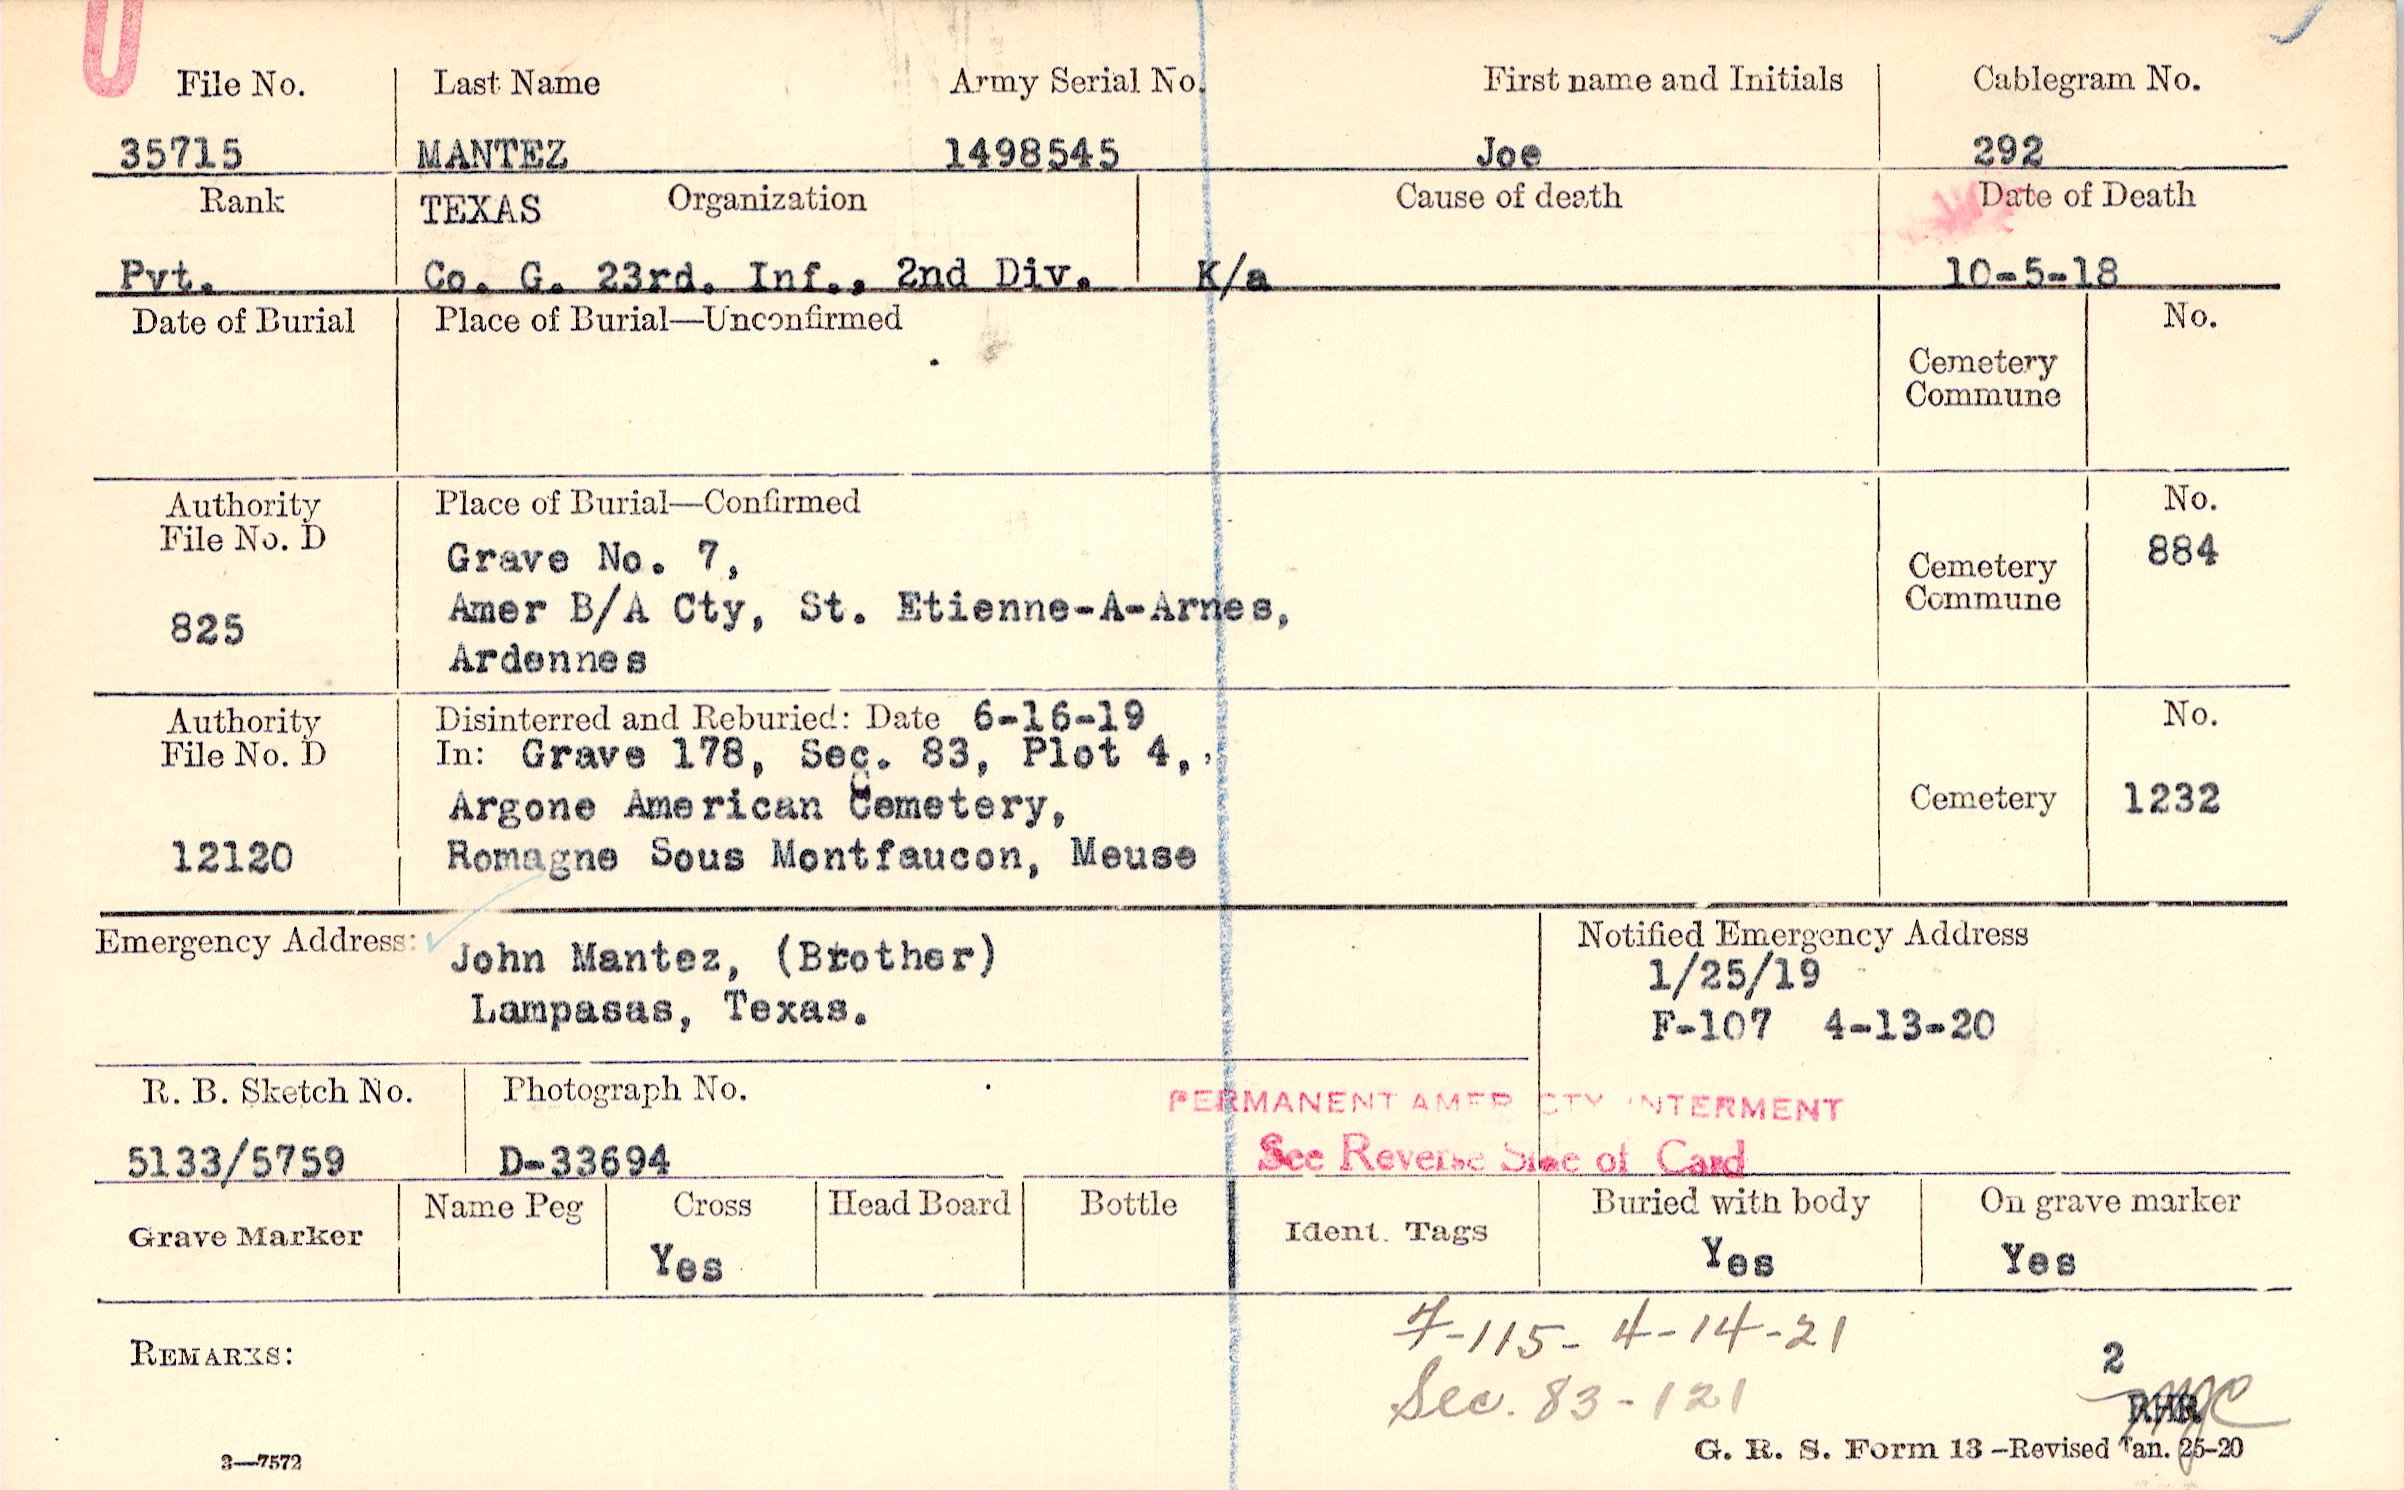 File No. Last Name Army Serial No. First name and Initials Cablegram No.
35715 MANTEZ 1498545 Joe 292
Rank TEXAS Organization Cause of death Date of Death
Pvt. Co. G. 23rd. Inf., 2nd Div. K/a 10-5-18
Date of Burial Place of Burial—Unconfirmed No.
Cemetery
Commune
Authority Place of Burial—Confirmed No.
File No. D
Grave No. 7, 884
Cemetery
Amer B/A Cty, St. Etienne-A-Arnes, Commune
825
Ardennes
Authority Disinterred and Reburied: Date 6-16-19 No.
File No. D In: Grave 178, Sec. 83, Plot 4,
Argone American Cemetery, Cemetery 1232
12120 Romagne Sous Montfaucon, Meuse
Emergency Address: John Mantez, (Brother) Notified Emergency Address
1/25/19
Lampasas, Texas. F-107 4-13-20
R. B. Sketch No. Photograph No. PERMANENT AMER CTY INTERMENT
5133/5759 D-33694 See Reverse Side of Card
Grave Marker Name Peg Cross Head Board Bottle Ident. Tags Buried with body On grave marker
Yes Yes Yes
7-115- 4-14-21
REMARKS: 2
Sec. 83-121
RHR
3—7572 G. R. S. Form 13—Revised Jan. 25-20